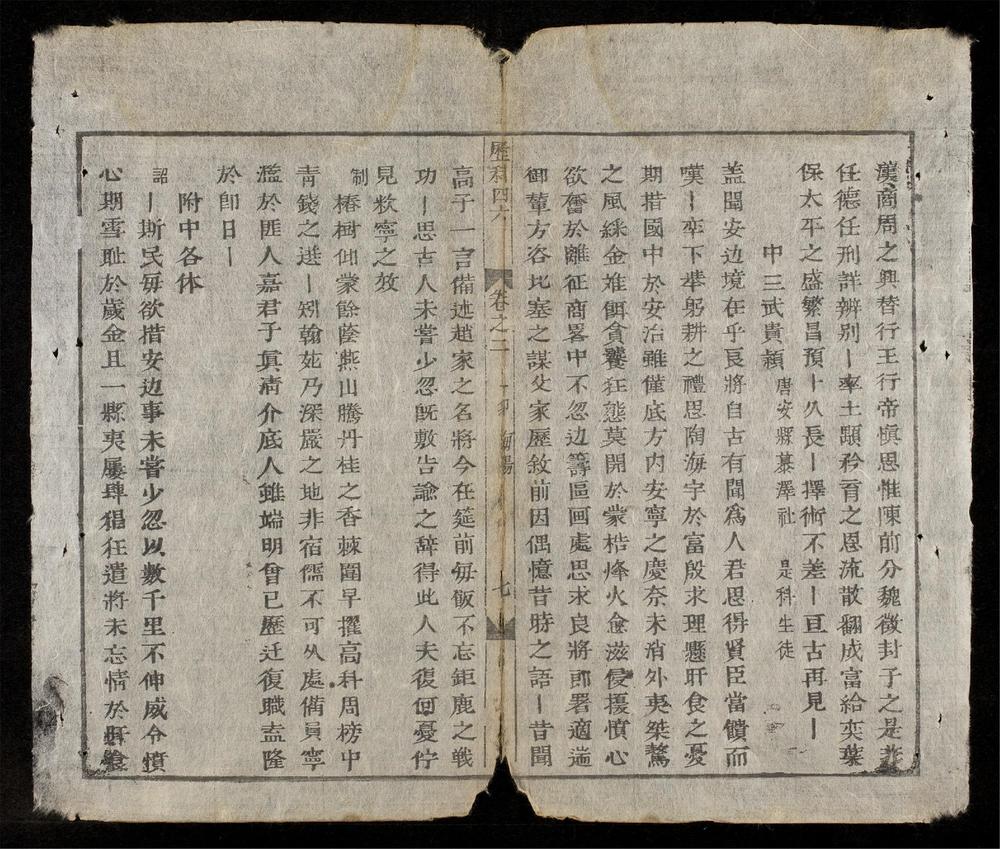 漢商周之興替行王行帝愼思惟陳前分魏徵封子之是非
任德任刑詳辨别〡率土顒矜育之恩流散翻成富給奕葉
保太平之盛繁昌預卜久長〡擇術不差〡亘古再見〡
中三武貴穎 唐安縣慕澤社 是科生徒
盖聞安边境在乎良將自古有聞爲人君思得賢臣當饋而
嘆〡卒下擧躬耕之禮思陶海宇於富殷求理懸旰食之憂
期措國中於安治雖僅底方内安寧之慶奈未消外夷桀驁
之風綵金难餌貪饕狂態莫開於蒙梏烽火愈滋侵擾憤心
欲奮於離征商畧中不忽边籌區画處思求良將郎署適遄
御輦方咨比塞之謀父家歷敘前因偶憶昔時之語〡昔聞
歷科四六 卷之二 七
高子一言備述趙家之名將今在筵前毎飯不忘鉅鹿之戦
功〡思古人未嘗少忽旣敷告諭之辞得此人夫復何憂佇
見救寧之效
制 椿樹仰蒙餘蔭燕山騰丹桂之香棘圍早擢高科周榜中
青錢之選〡矧翰苑乃深嚴之地非宿儒不可久處俻員寧
濫於匪人嘉君子眞淸介底人雖端明曾已歷迁復職盍隆
於卽日〡
附中各体
詔 〡斯民毎欲措安边事未嘗少忽以数千里不伸威令憤
心期雪耻於歲金且一縣夷屢肆猖狂遣將未忘情於旰飱